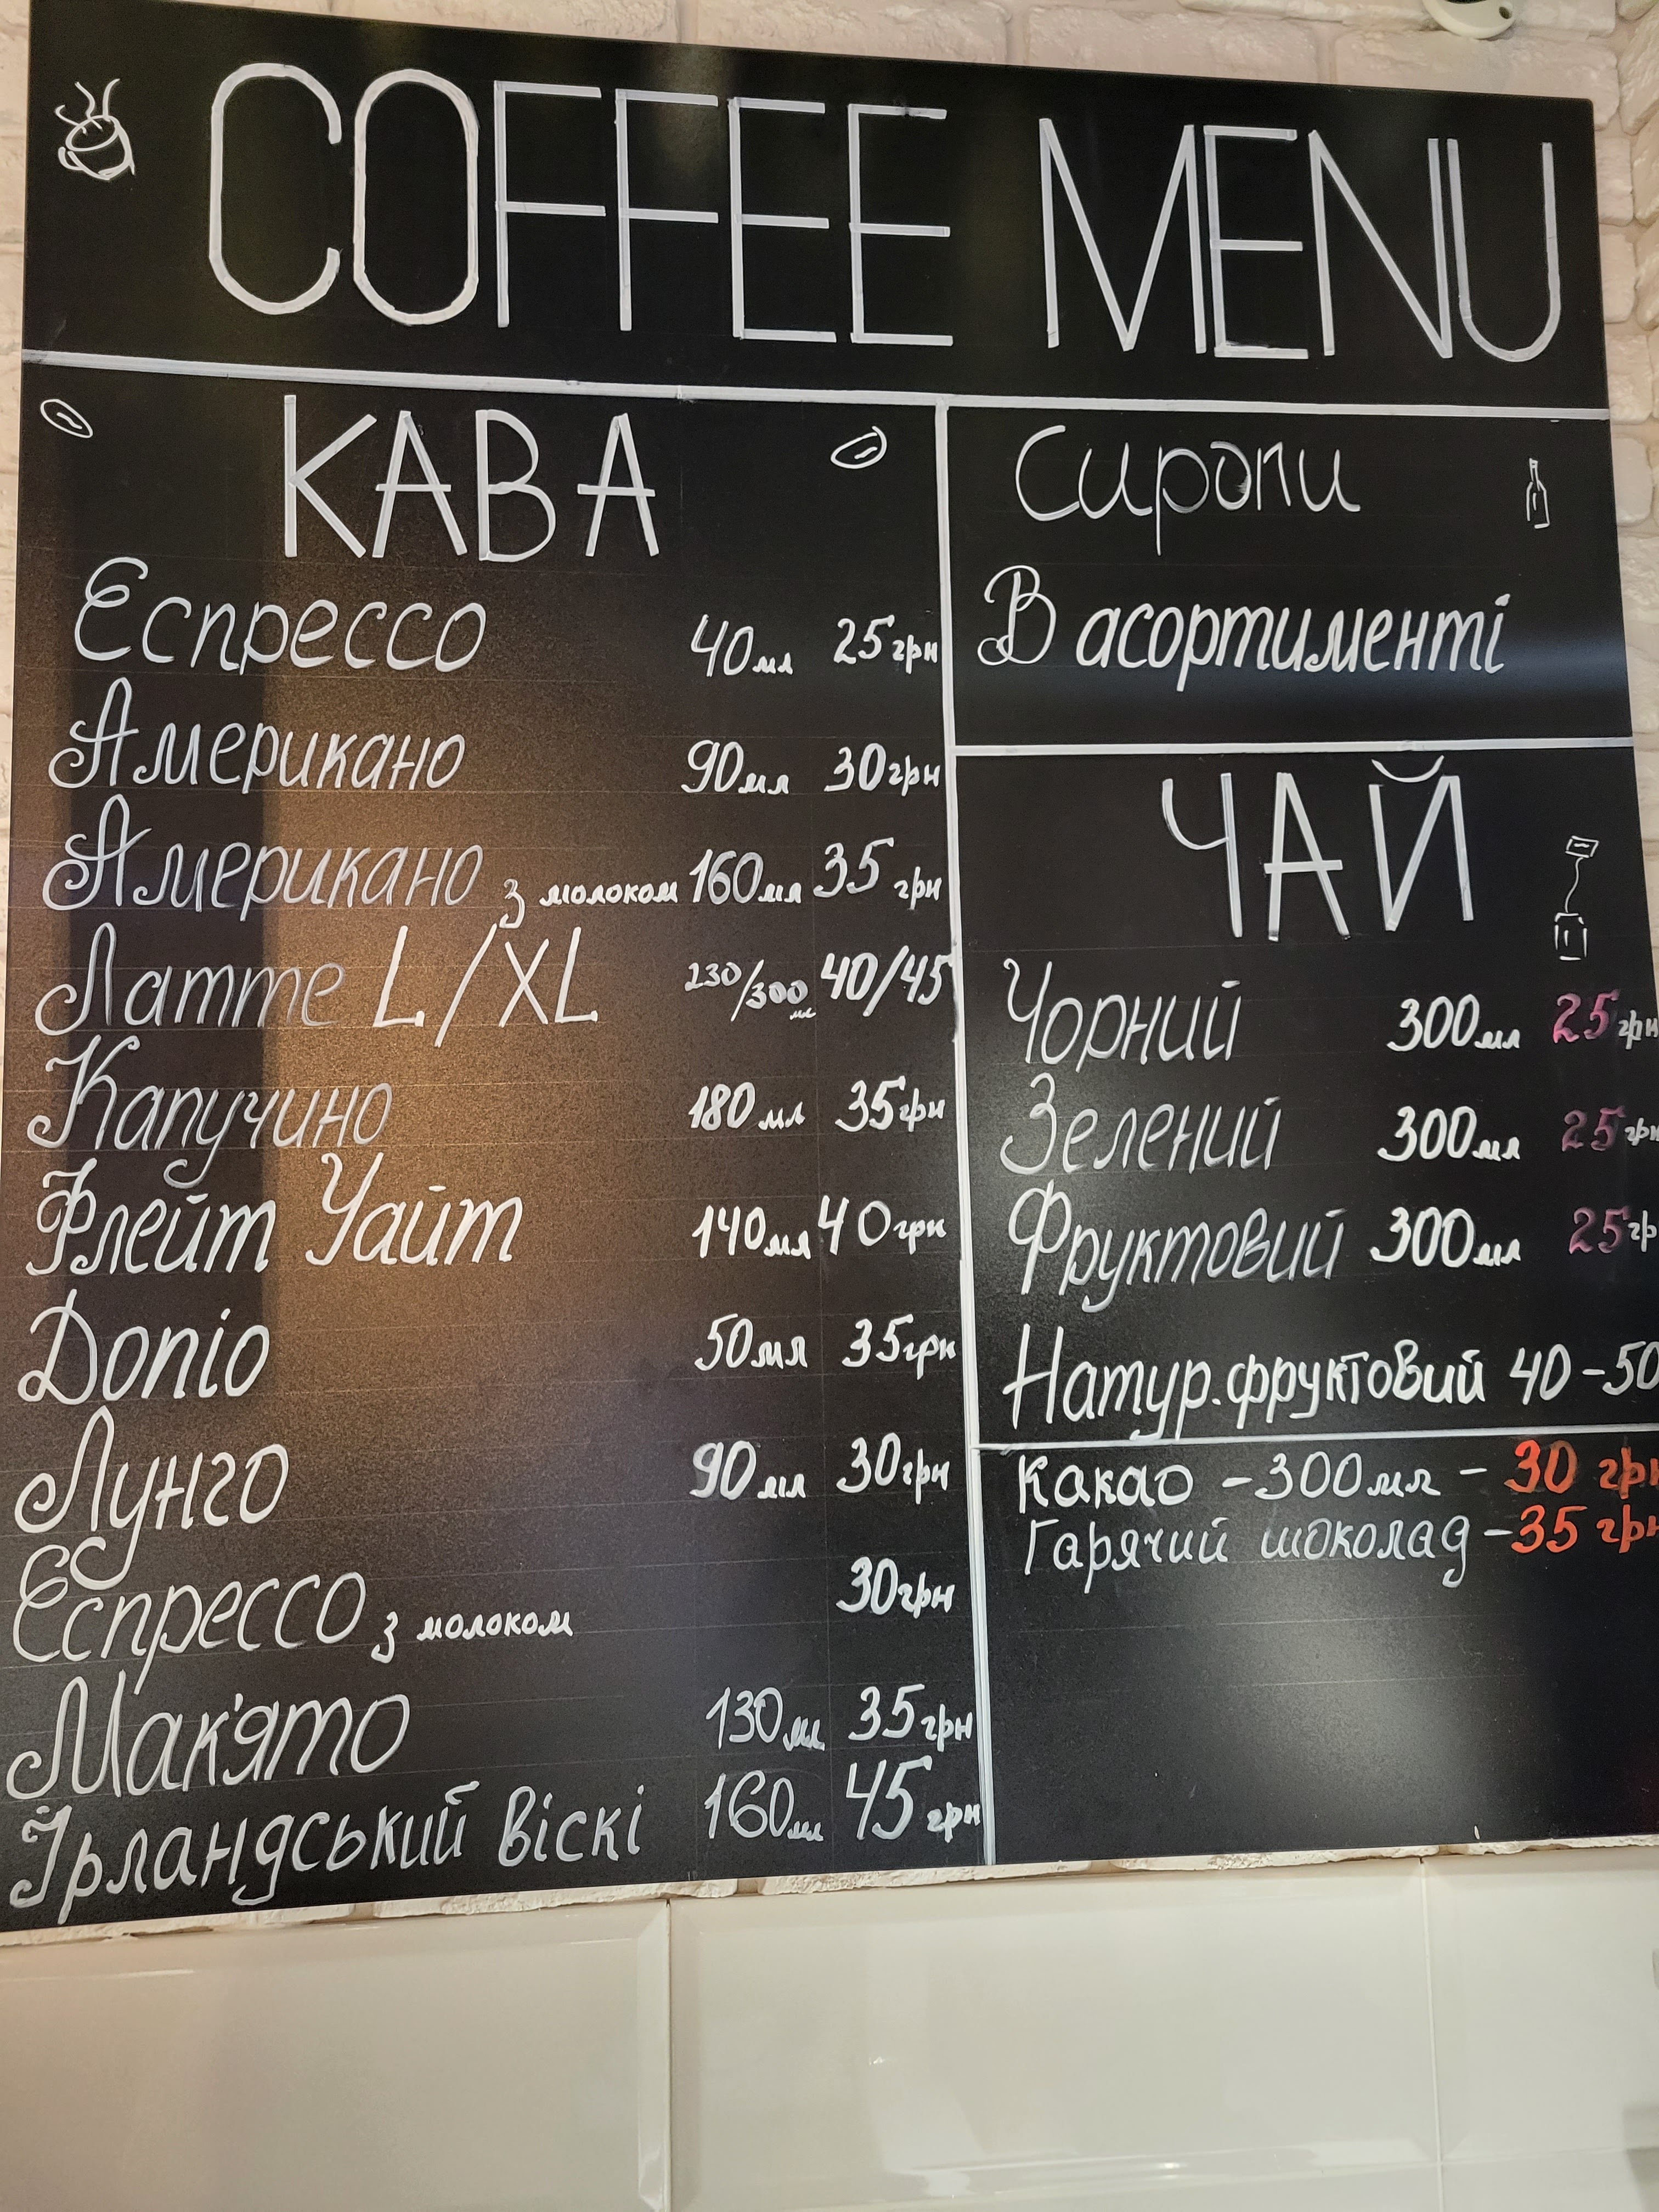 COFFEE MENU
КАВА
Еспрессо 40мл 25грн
Американо 90мл 30грн
Американо з молоком 160мл 35грн
Латте L/XL 230/300мл 40/45
Капучино 180мл 35грн
Флейт Уайт 140мл 40грн
Допіо 50мл 35грн
Лунго 90мл 30грн
Еспрессо з молоком 30грн
Мак'ято 130мл 35грн
Ірландський віскі 160мл 45грн
Сиропи
В асортименті
ЧАЙ
Чорний 300мл 25грн
Зелений 300мл 25грн
Фруктовий 300мл 25гр
Натур.фруктовий 40-50
Какао - 300мл - 30 грн
Гарячий шоколад - 35 грн